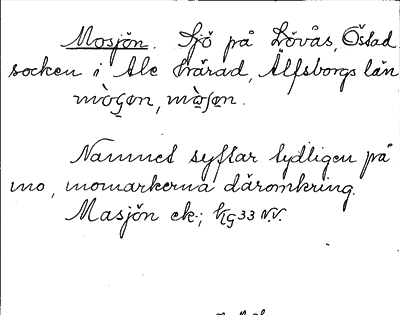 Mosjön. Sjö på Lövås, Östad
socken i Ale härad, Älfsborgs län
Namnet syftar tydligen på
mo, momarkerna däromkring.
Masjön ek.; Kg 33 N.V.